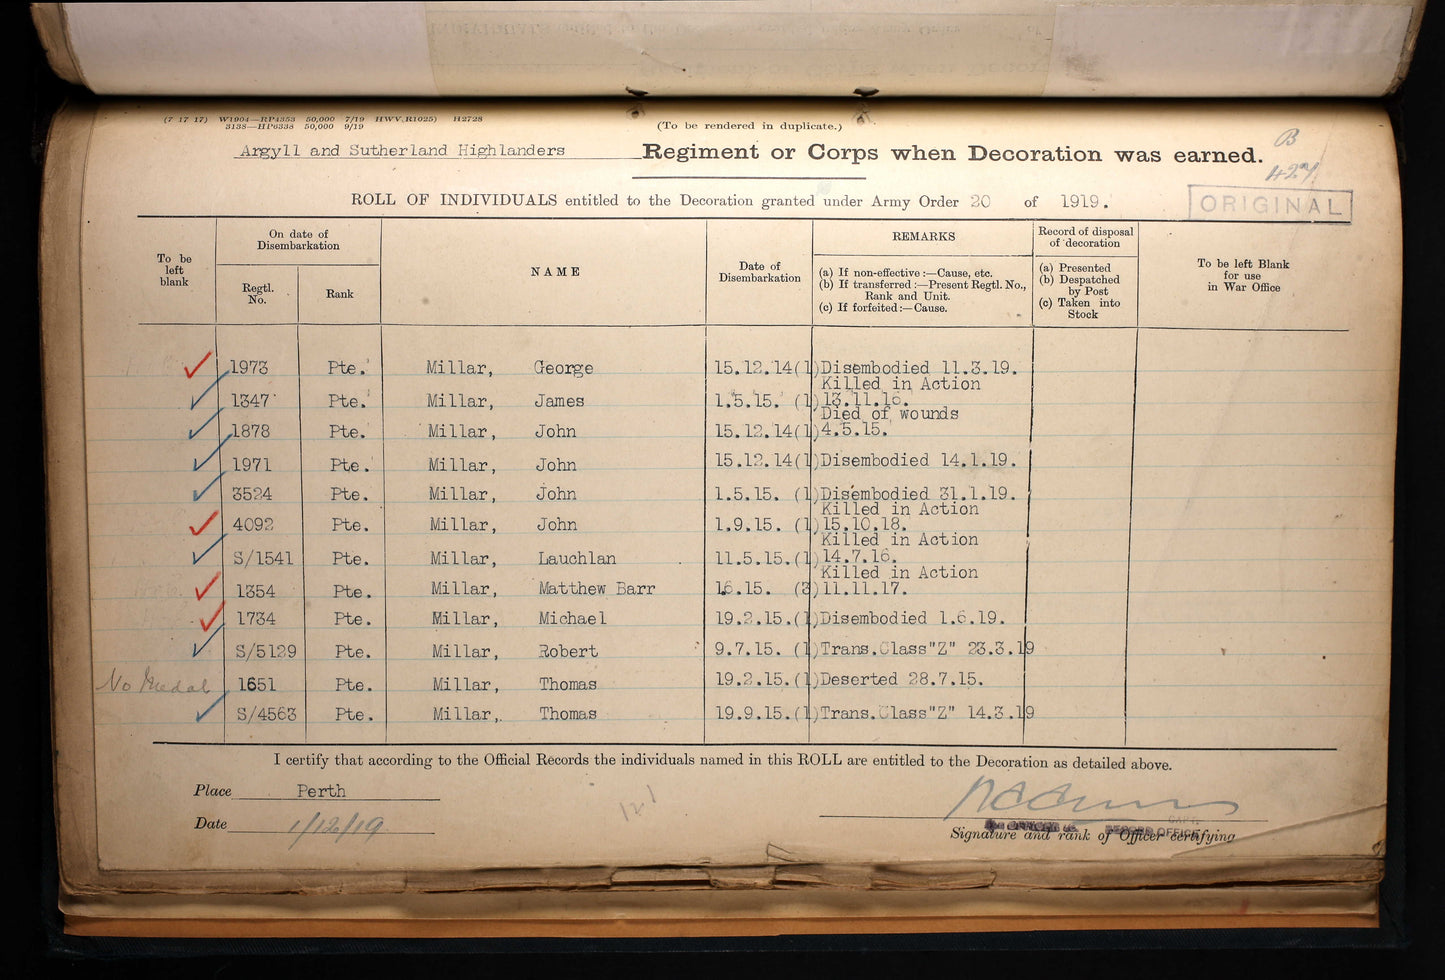 (7 17 17) W1904—RP4353 50,000 7/19 HWV(R1025) H2728
3138—HP6338 50,000 9/19
(To be rendered in duplicate.)
B
427
Argyll and Sutherland Highlanders Regiment or Corps when Decoration was earned.
ROLL OF INDIVIDUALS entitled to the Decoration granted under Army Order 20 of 1919.
ORIGINAL
To be left blank
On date of Disembarkation
Regtl. No.
Rank
NAME
Date of Disembarkation
REMARKS
(a) If non-effective :—Cause, etc.
(b) If transferred :—Present Regtl. No., Rank and Unit.
(c) If forfeited :—Cause.
Record of disposal of decoration
(a) Presented
(b) Despatched by Post
(c) Taken into Stock
To be left Blank for use in War Office
1973 Pte. Millar, George 15.12.14(1) Disembodied 11.3.19.
Killed in Action
1347 Pte. Millar, James 1.5.15. (1) 13.11.16.
Died of wounds
1878 Pte. Millar, John 15.12.14(1) 4.5.15.
1971 Pte. Millar, John 15.12.14(1) Disembodied 14.1.19.
3524 Pte. Millar, John 1.5.15. (1) Disembodied 31.1.19.
Killed in Action
4092 Pte. Millar, John 1.9.15. (1) 15.10.18.
Killed in Action
S/1541 Pte. Millar, Lauchlan 11.5.15.(1) 14.7.16.
Killed in Action
1354 Pte. Millar, Matthew Barr 1.6.15. (3) 11.11.17.
1734 Pte. Millar, Michael 19.2.15.(1) Disembodied 1.6.19.
S/5129 Pte. Millar, Robert 9.7.15. (1) Trans.Class"Z" 23.3.19
No Medal 1651 Pte. Millar, Thomas 19.2.15.(1) Deserted 28.7.15.
S/4563 Pte. Millar, Thomas 19.9.15.(1) Trans.Class"Z" 14.3.19
I certify that according to the Official Records the individuals named in this ROLL are entitled to the Decoration as detailed above.
Place Perth
Date 1/12/19
121
Signature and rank of Officer certifying